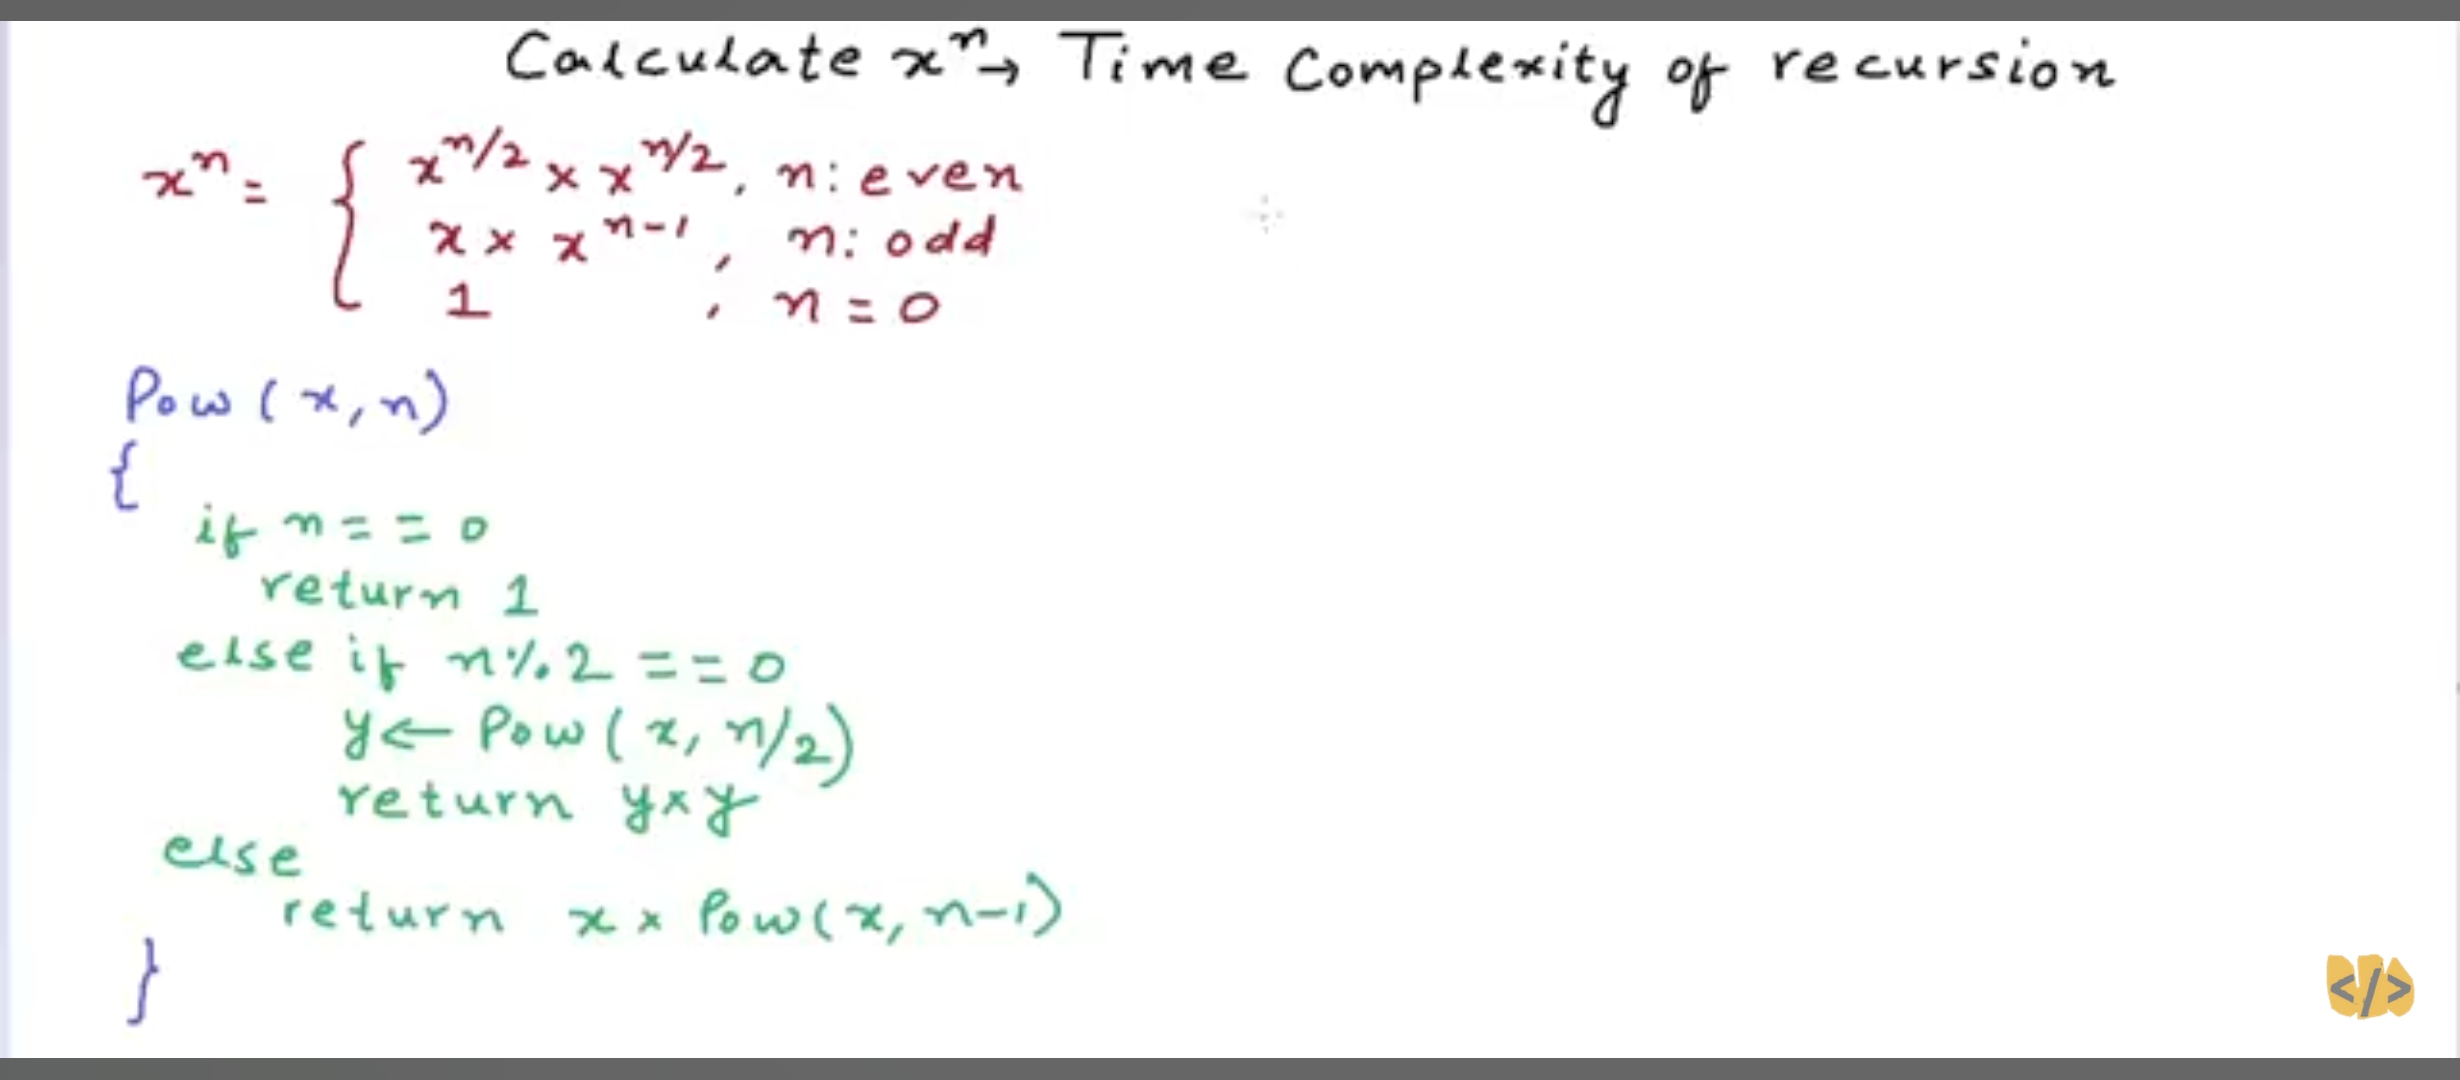 Calculate xⁿ → Time Complexity of recursion
xⁿ = { x^n/2 × x^n/2, n: even
x × x^n-1, n: odd
1 , n = 0
Pow (x, n)
{
if n == 0
return 1
else if n%2 == 0
y ← Pow (x, n/2)
return y×y
else
return x × Pow(x, n-1)
}
</>